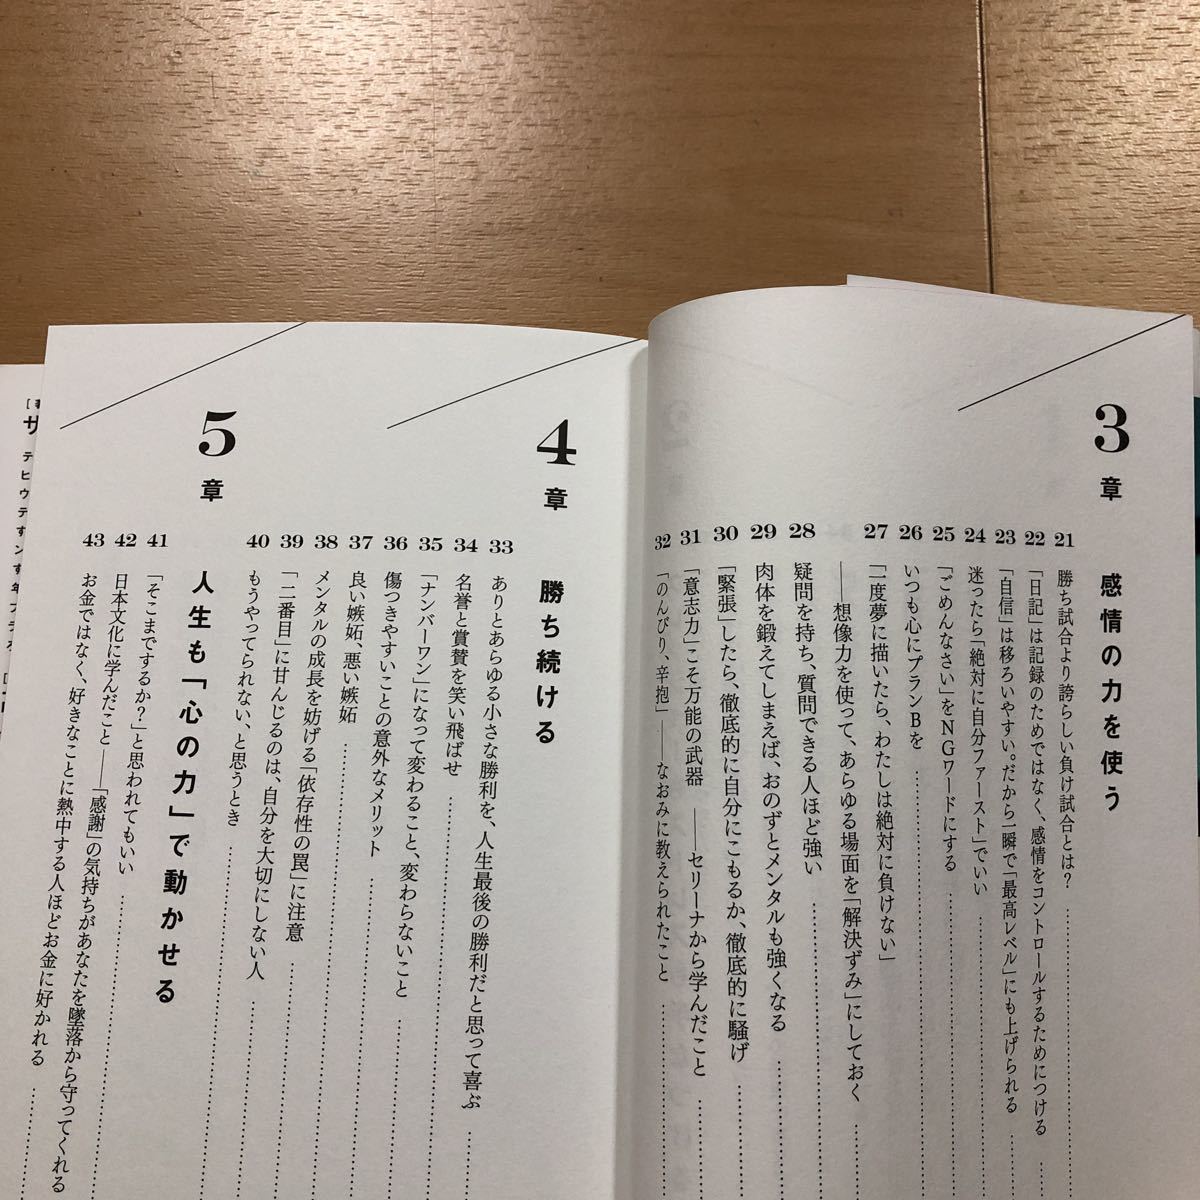 3章 感情の力を使う
21 勝ち試合より誇らしい負け試合とは?
22 「日記」は記録のためではなく、感情をコントロールするためにつける
23 「自信」は移ろいやすい。だから一瞬で「最高レベル」にも上げられる
24 迷ったら「絶対に自分ファースト」でいい
25 「ごめんなさい」をNGワードにする
26 いつも心にプランBを
27 「一度夢に描いたら、わたしは絶対に負けない」
——想像力を使って、あらゆる場面を「解決ずみ」にしておく
28 疑問を持ち、質問できる人ほど強い
29 肉体を鍛えてしまえば、おのずとメンタルも強くなる
30 「緊張」したら、徹底的に自分にこもるか、徹底的に騒げ
31 「意志力」こそ万能の武器 ——セリーナから学んだこと
32 「のんびり、辛抱」——なおみに教えられたこと
4章 勝ち続ける
33 ありとあらゆる小さな勝利を、人生最後の勝利だと思って喜ぶ
34 名誉と賞賛を笑い飛ばせ
35 「ナンバーワン」になって変わること、変わらないこと
36 傷つきやすいことの意外なメリット
37 良い嫉妬、悪い嫉妬
38 メンタルの成長を妨げる「依存性の罠」に注意
39 「二番目」に甘んじるのは、自分を大切にしない人
40 もうやってられない、と思うとき
5章 人生も「心の力」で動かせる
41 「そこまでするか?」と思われてもいい
42 日本文化に学んだこと——「感謝」の気持ちがあなたを墜落から守ってくれる
43 お金ではなく、好きなことに熱中する人ほどお金に好かれる